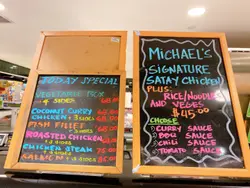 TODAY SPECIAL
VEGETABLE MIX
+ 4 SIDES
COCONUT CURRY
CHICKEN +
FISH FILLET
+ 3 SIDES
ROASTED CHICKEN
+ 3 SIDES
CHICKEN STEAK
+ 3 SIDES
MICHAEL'S
SIGNATURE
SATAY CHICKEN
PLUS:
RICE/NOODLES
AND VEGES
$45.00
CHOOSE
CURRY SAUCE
BBQ SAUCE
CHILI SAUCE
TOMATO SAUCE